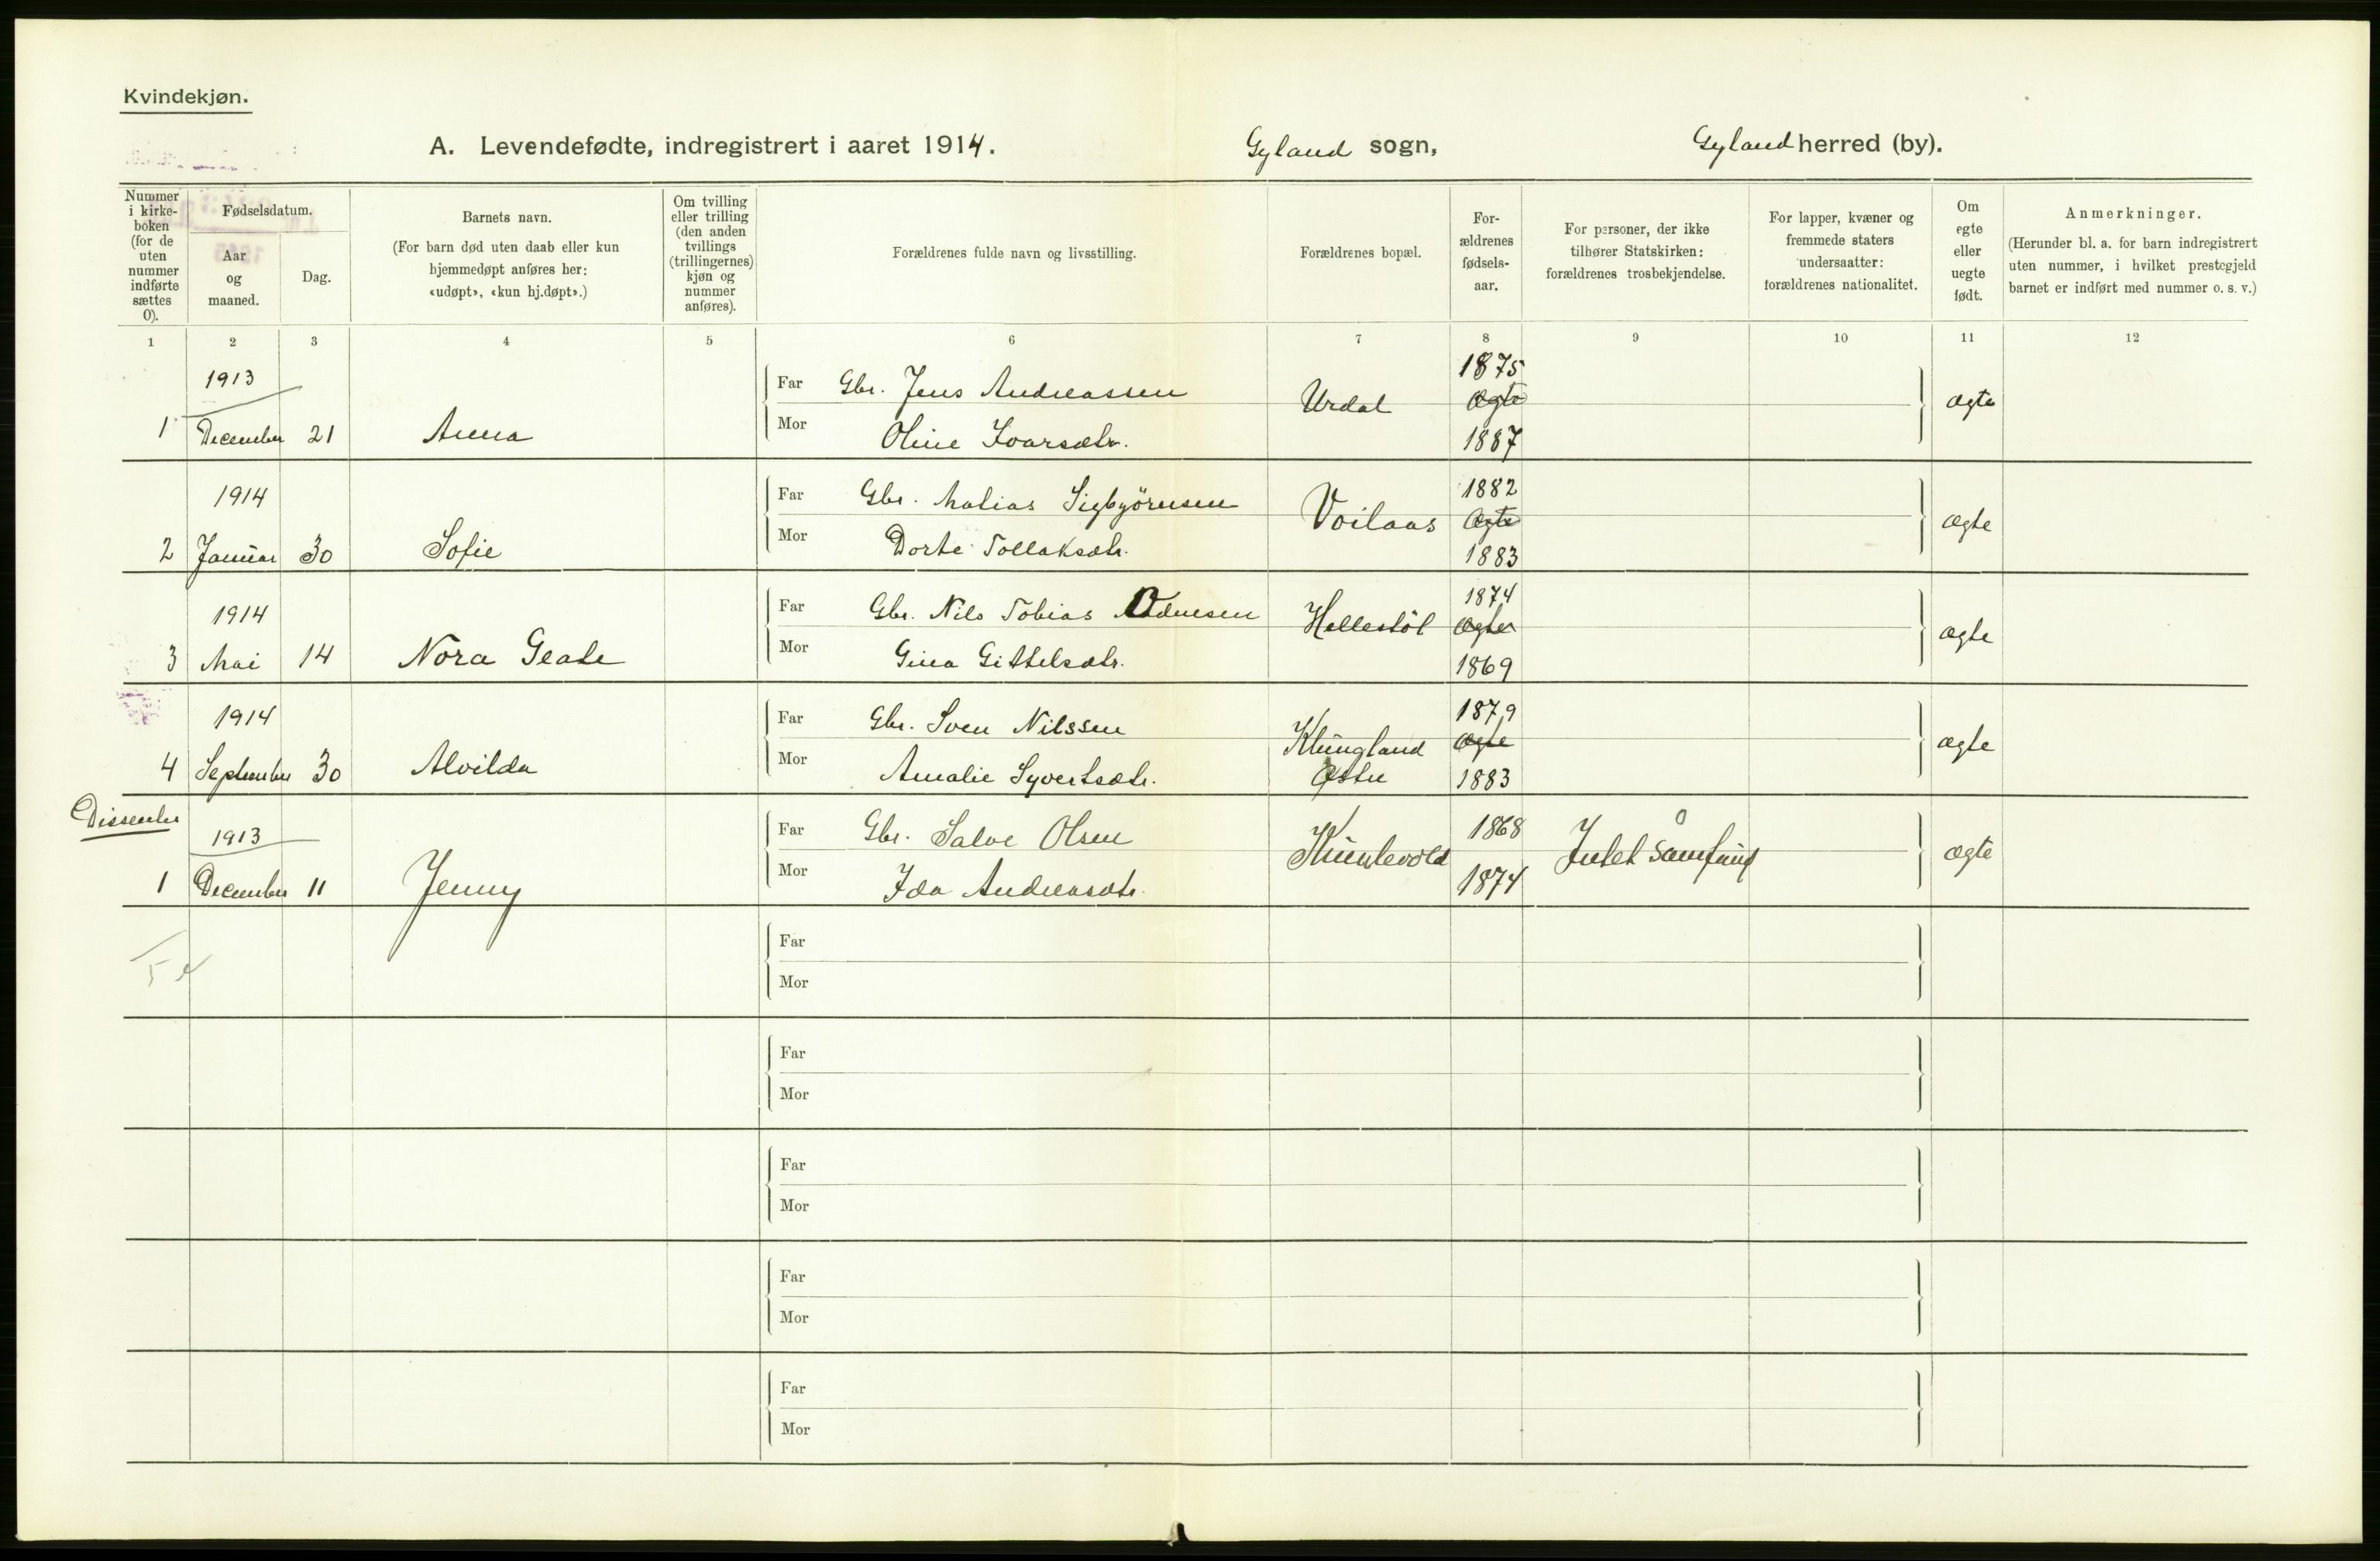 Kvindekjøn.
A. Levendefødte, indregistrert i aaret 1914. Gyland sogn, Gyland herred (by).
Nummer i kirke-boken (for de uten nummer indførte sættes 0).
Fødselsdatum.
Aar og maaned.
Dag.
Barnets navn.
(For barn død uten daab eller kun hjemmedøpt anføres her: «udøpt», «kun hj.døpt».)
Om tvilling eller trilling (den anden tvillings (trillingernes) kjøn og nummer anføres).
Forældrenes fulde navn og livsstilling.
Forældrenes bopæl.
For-ældrenes fødsels-aar.
For personer, der ikke tilhører Statskirken: forældrenes trosbekjendelse.
For lapper, kvæner og fremmede staters undersaatter: forældrenes nationalitet.
Om egte eller uegte født.
Anmerkninger.
(Herunder bl. a. for barn indregistrert uten nummer, i hvilket prestegjeld barnet er indført med nummer o. s. v.)
1 2 3 4 5 6 7 8 9 10 11 12
1913 Far Gbr. Jens Andreassen Urdal 1875 ægte ægte
1 December 21 Anna Mor Oline Ivarsdtr. 1887
1914 Far Gbr. Matias Sigbjörnsen Voilaas 1882 ægte ægte
2 Januar 30 Sofie Mor Dorte Tollaksdtr. 1883
1914 Far Gbr. Nils Tobias Odnesen Hellestöl 1874 ægte ægte
3 Mai 14 Nora Geate Mor Gina Gittelsdtr. 1869
1914 Far Gbr. Sven Nilssen Klungland Østre 1879 ægte ægte
4 September 30 Alvilda Mor Amalie Syvertsdtr. 1883
Dissenter
1913 Far Gbr. Salve Olsen 1868 Intet samfund ægte
1 December 11 Jenny Mor Ida Andreasdtr. 1874
Far
Mor
Far
Mor
Far
Mor
Far
Mor
Far
Mor